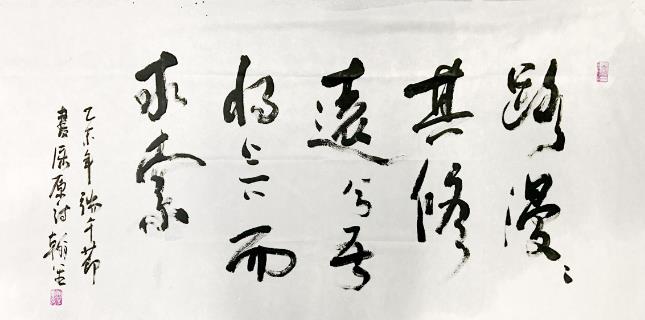 路漫〻
其修
遠兮吾
将上下而
求索
乙未年端午節
書屈原诗 翰